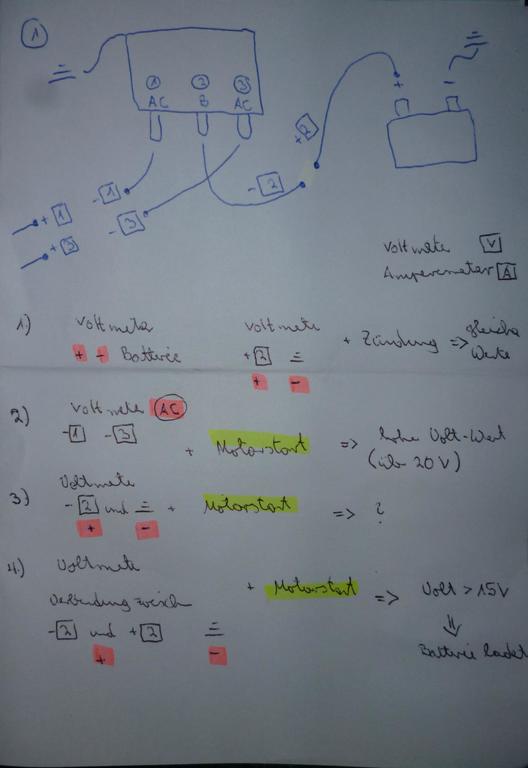 1
1 2 3
AC B AC
+ -
+2
-1 -2
+1 -3
+3
Voltmete V
Amperemeter A
1.) Voltmeter Voltmete + Zündung => gleiche
+ - Batterie +2 Werte
+ -
2) Voltmeter AC
-1 -3 + Motorstart => hohe Volt-Wert
(über 20 V)
3) Voltmete
-2 und + Motorstart => ?
+ -
4.) Voltmete
+ Motorstart => Volt > 15V
Verbindung zwisch
-2 und +2 Batterie ladet
+ -